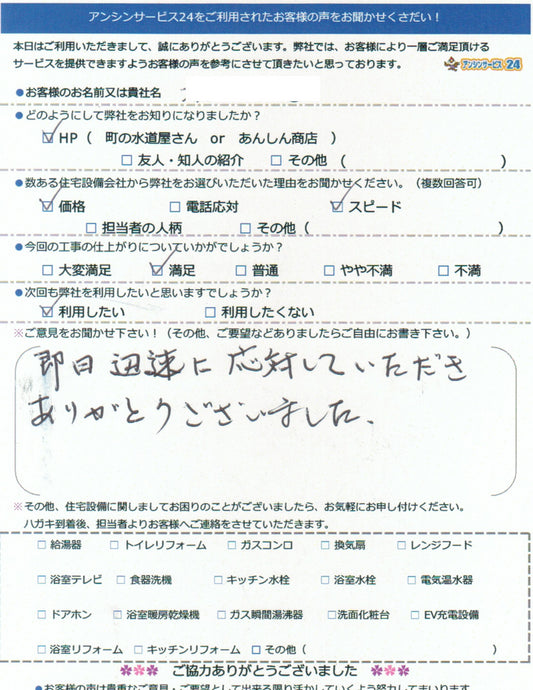 アンシンサービス24をご利用されたお客様の声をお聞かせください！
本日はご利用いただきまして、誠にありがとうございます。弊社では、お客様により一層ご満足頂ける
サービスを提供できますようお客様の声を参考にさせて頂きたいと思っております。
アンシンサービス 24
●お客様のお名前又は貴社名
●どのようにして弊社をお知りになりましたか？
☑HP（ 町の水道屋さん or あんしん商店 ）
□友人・知人の紹介 □その他 （ ）
●数ある住宅設備会社から弊社をお選びいただいた理由をお聞かせください。（複数回答可）
☑価格 □電話応対 ☑スピード
□担当者の人柄 □その他（ ）
●今回の工事の仕上がりについていかがでしょうか？
□大変満足 ☑満足 □普通 □やや不満 □不満
●次回も弊社を利用したいと思いますでしょうか？
☑利用したい □利用したくない
※ご意見をお聞かせ下さい！（その他、ご要望などありましたらご自由にお書き下さい。）
即日迅速に応対していただき
ありがとうございました。
※その他、住宅設備に関しましてお困りのことがございましたら、お気軽にお申し付けください。
ハガキ到着後、担当者よりお客様へご連絡をさせていただきます。
□給湯器 □トイレリフォーム □ガスコンロ □換気扇 □レンジフード
□浴室テレビ □食器洗機 □キッチン水栓 □浴室水栓 □電気温水器
□ドアホン □浴室暖房乾燥機 □ガス瞬間湯沸器 □洗面化粧台 □EV充電設備
□浴室リフォーム □キッチンリフォーム □その他（ ）
ご協力ありがとうございました
●お客様の声は貴重なご意見・ご要望として出来る限り活かしていくよう努力してまいります